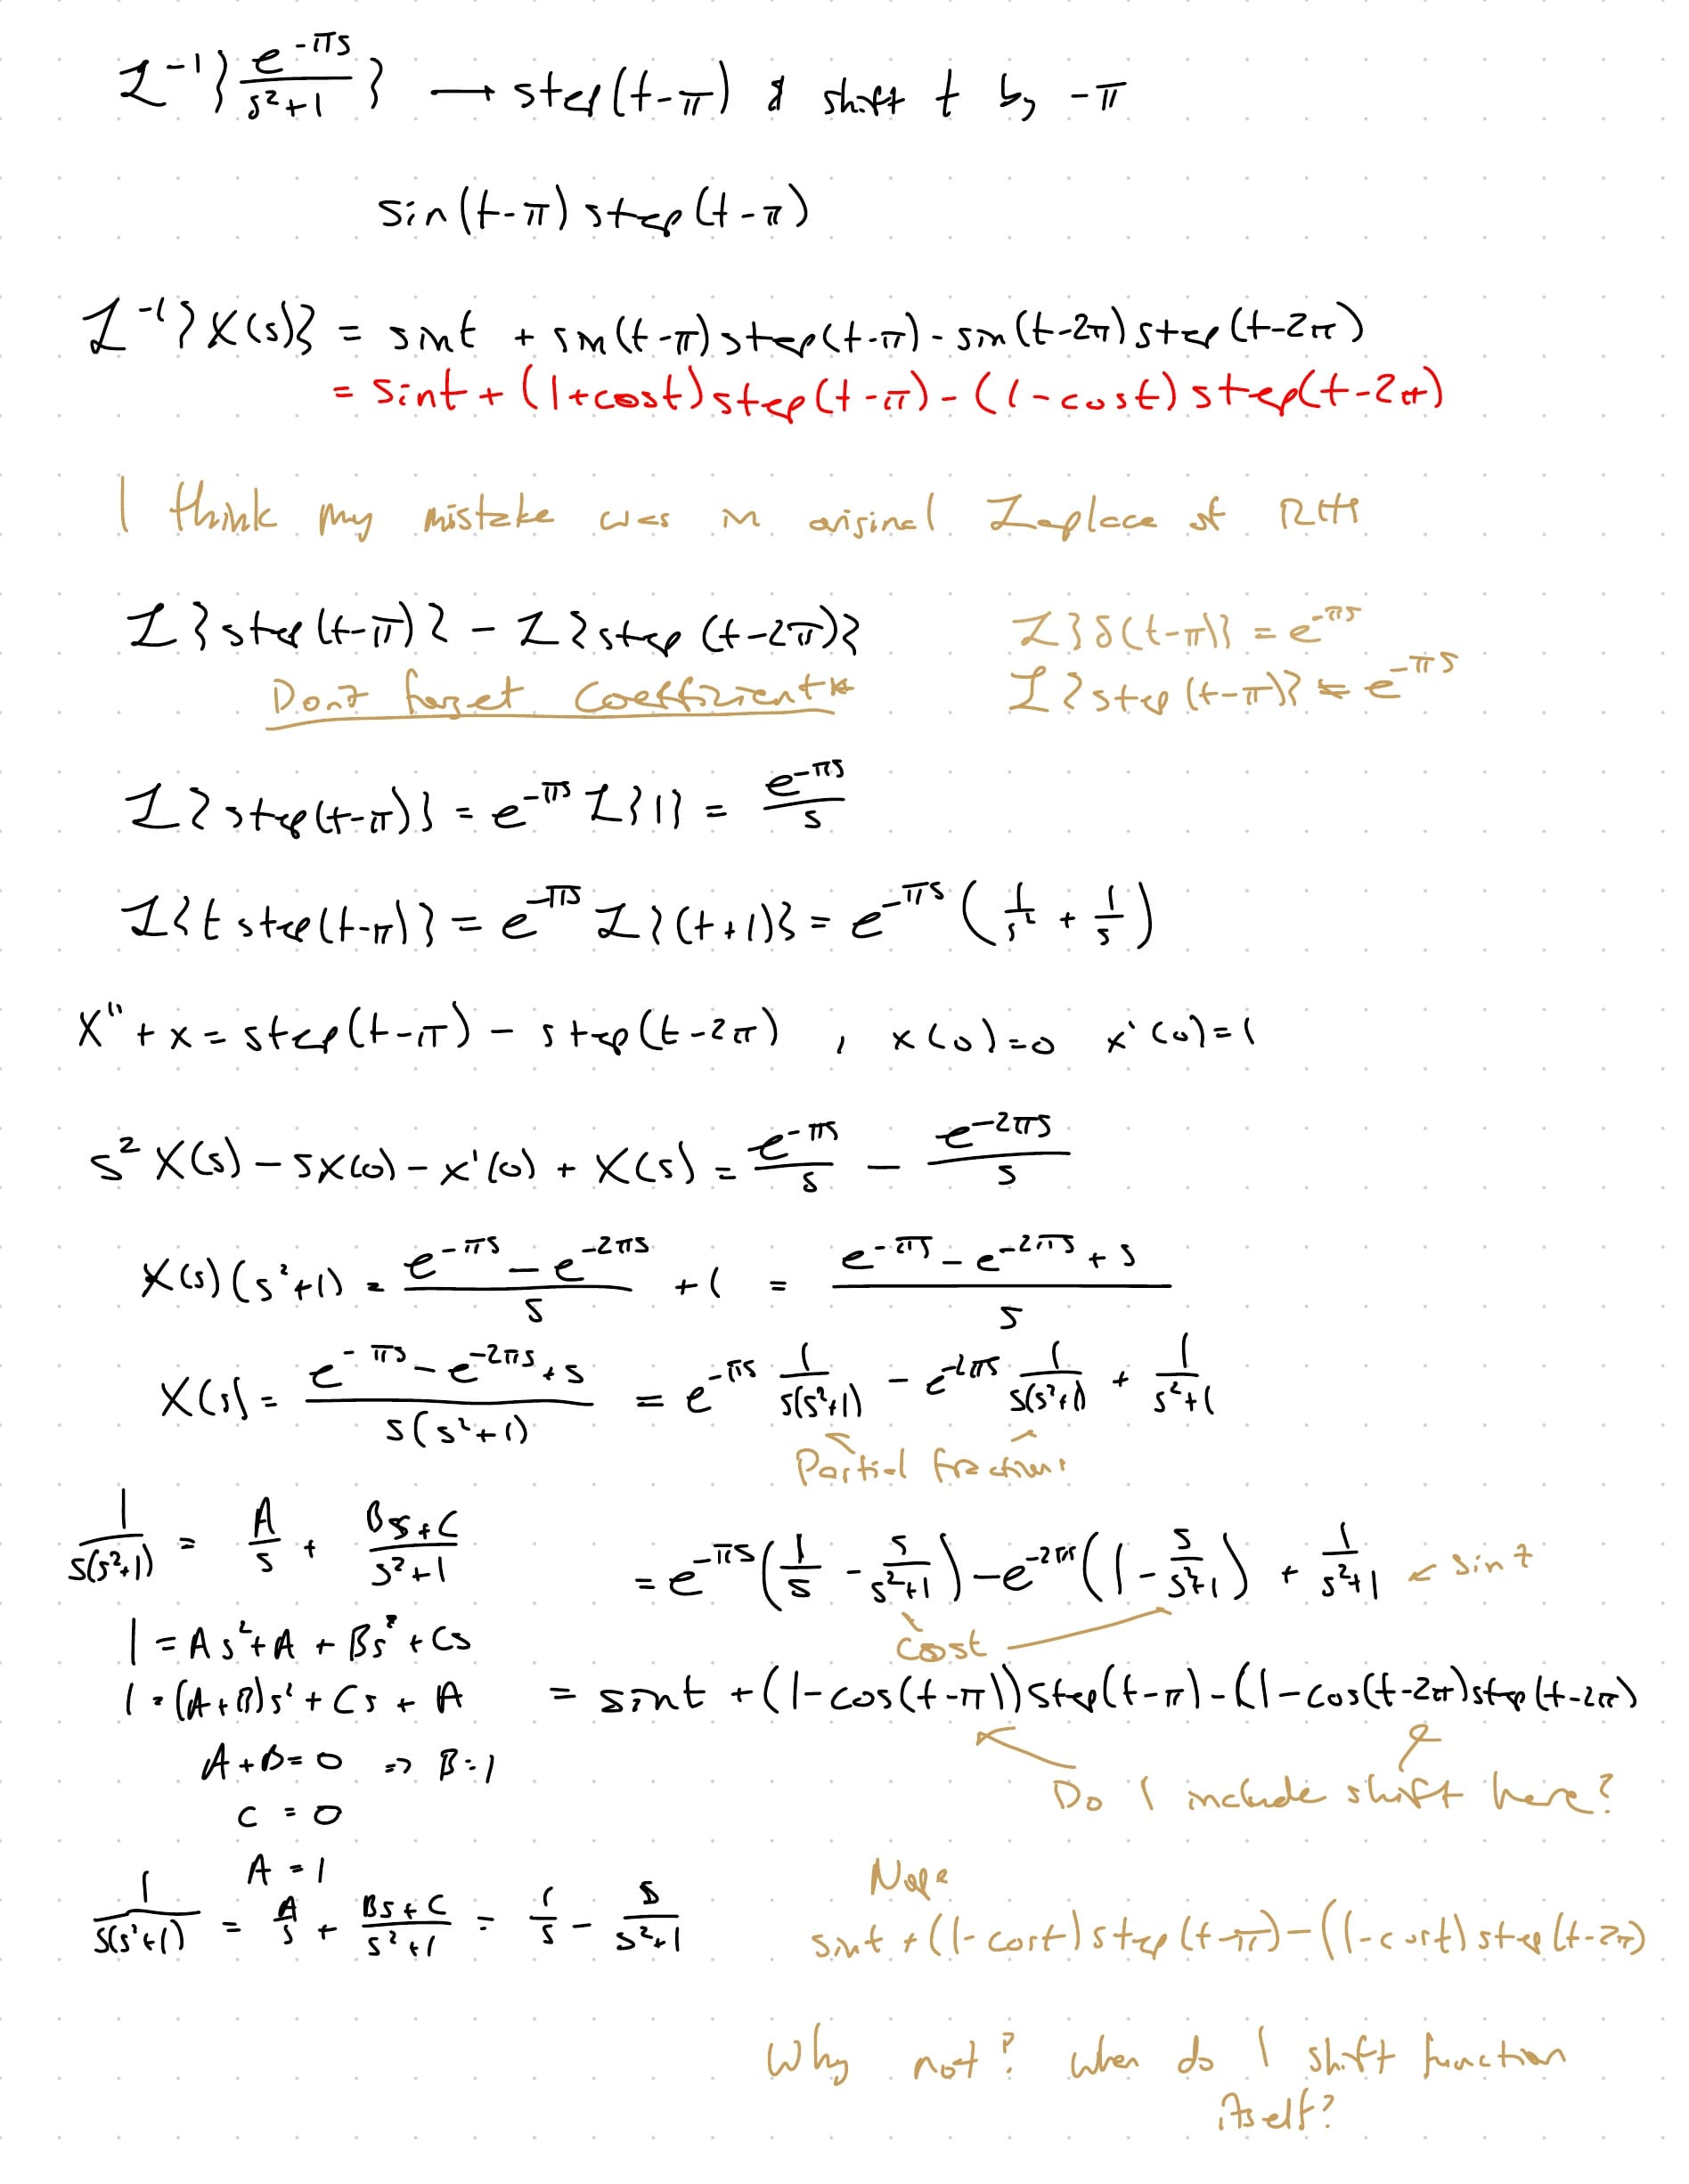 ℒ⁻¹{ e^(-πs) / (s²+1) } → step(t-π) & shift t by -π
sin(t-π) step(t-π)
ℒ⁻¹{X(s)} = sint + sin(t-π) step(t-π) - sin(t-2π) step(t-2π)
= sint + (1+cost) step(t-π) - (1-cost) step(t-2π)
I think my mistake was in original Laplace of RHS
ℒ{step(t-π)} - ℒ{step(t-2π)}
ℒ{δ(t-π)} = e^(-πs)
Don't forget coefficient*
ℒ{step(t-π)} ≠ e^(-πs)
ℒ{step(t-π)} = e^(-πs) ℒ{1} = e^(-πs)/s
ℒ{t step(t-π)} = e^(-πs) ℒ{(t+1)} = e^(-πs) (1/s² + 1/s)
x'' + x = step(t-π) - step(t-2π) , x(0)=0 x'(0)=1
s² X(s) - sx(0) - x'(0) + X(s) = e^(-πs)/s - e^(-2πs)/s
X(s)(s²+1) = (e^(-πs) - e^(-2πs))/s + 1 = (e^(-πs) - e^(-2πs) + s)/s
X(s) = (e^(-πs) - e^(-2πs) + s)/(s(s²+1)) = e^(-πs) 1/(s(s²+1)) - e^(-2πs) 1/(s(s²+1)) + 1/(s²+1)
Partial fractions
1/(s(s²+1)) = A/s + (Bs+C)/(s²+1)
= e^(-πs) (1/s - s/(s²+1)) - e^(-2πs) (1 - s/(s²+1)) + 1/(s²+1) ← sin t
cost
1 = As²+A + Bs² + Cs
1 = (A+B)s² + Cs + A
= sint + (1-cos(t-π)) step(t-π) - (1-cos(t-2π) step(t-2π)
A+B=0 => B=1
Do I include shift here?
C = 0
A = 1
Nope
1/(s(s²+1)) = A/s + (Bs+C)/(s²+1) = 1/s - s/(s²+1)
sint + (1-cost) step(t-π) - (1-cost) step(t-2π)
Why not? when do I shift function
itself?